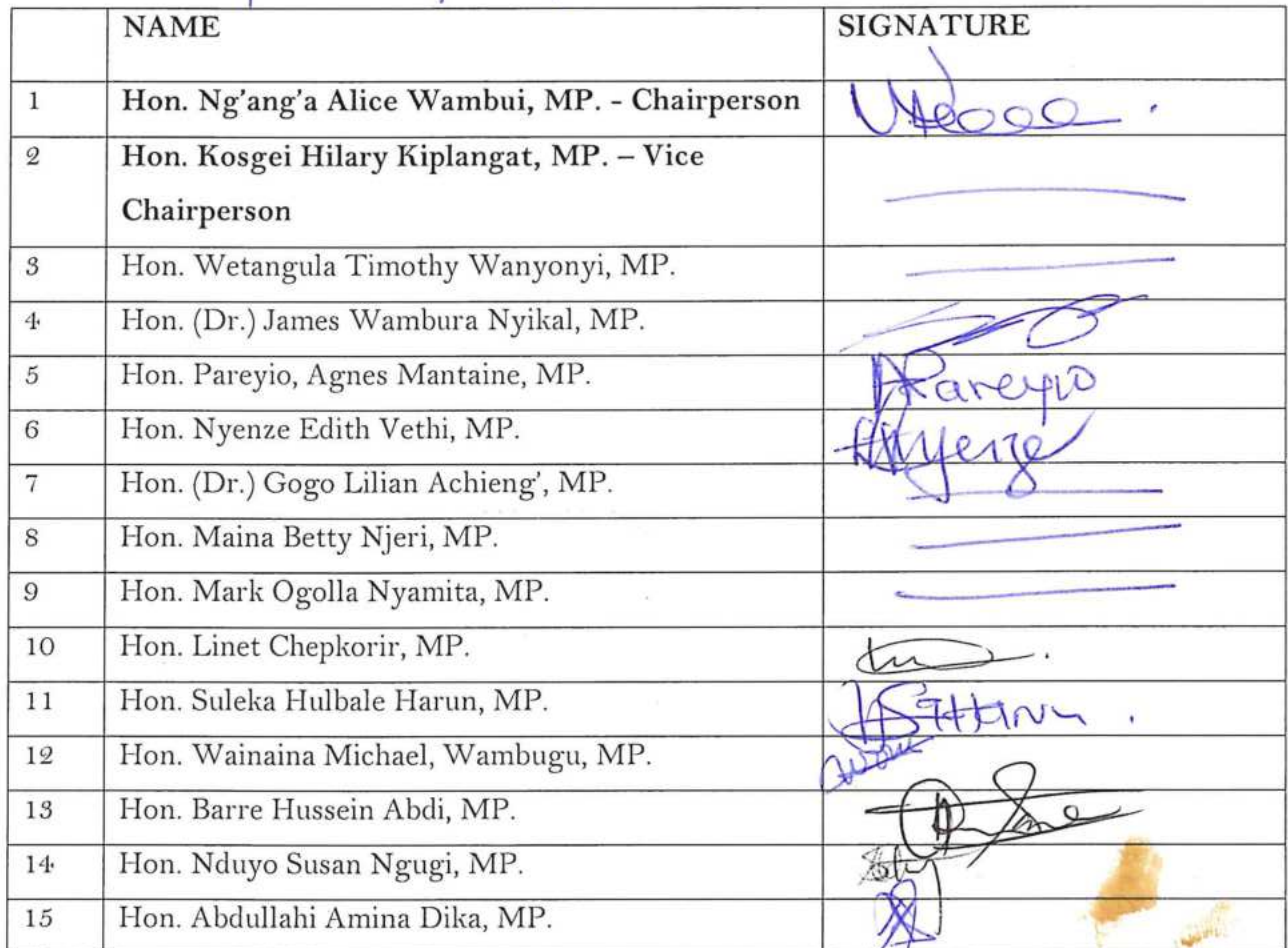 NAME SIGNATURE
1 Hon. Ng'ang'a Alice Wambui, MP. - Chairperson
2 Hon. Kosgei Hilary Kiplangat, MP. – Vice
Chairperson
3 Hon. Wetangula Timothy Wanyonyi, MP.
4 Hon. (Dr.) James Wambura Nyikal, MP.
5 Hon. Pareyio, Agnes Mantaine, MP. APareyio
6 Hon. Nyenze Edith Vethi, MP. Nyenze
7 Hon. (Dr.) Gogo Lilian Achieng', MP.
8 Hon. Maina Betty Njeri, MP.
9 Hon. Mark Ogolla Nyamita, MP.
10 Hon. Linet Chepkorir, MP.
11 Hon. Suleka Hulbale Harun, MP.
12 Hon. Wainaina Michael, Wambugu, MP.
13 Hon. Barre Hussein Abdi, MP.
14 Hon. Nduyo Susan Ngugi, MP.
15 Hon. Abdullahi Amina Dika, MP.